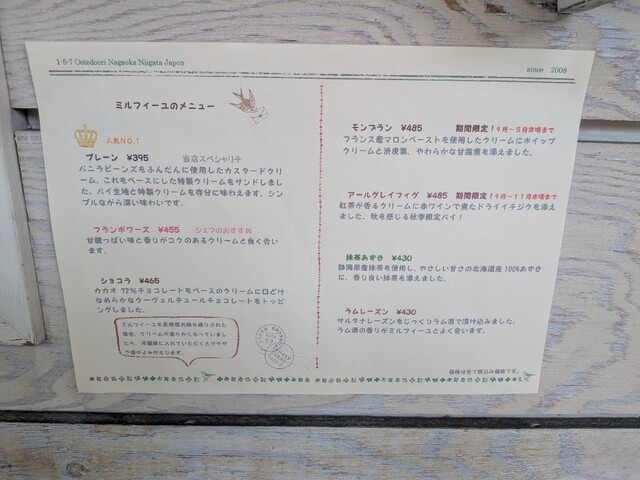 1-5-7 Ootedoori Nagaoka Niigata Japon
since 2008
ミルフィーユのメニュー
人気NO.1
プレーン ¥395 当店スペシャリテ
バニラビーンズをふんだんに使用したカスタードクリ
ーム。これをベースにした特製クリームをサンドしまし
た。パイ生地と特製クリームを存分に味わえます。シン
プルながら深い味わいです。
フランボワーズ ¥455 シェフのおすすめ
甘酸っぱい味と香りがコクのあるクリームと良く合い
ます。
ショコラ ¥465
カカオ 72%チョコレートをベースのクリームに口どけ
なめらかなクーヴェルチュールチョコレートをトッピ
ングしました。
ミルフィーユを長時間お持ち歩きされた
場合、クリームが柔らかくなっていまし
たら、冷蔵庫に入れていただくとサクサ
ク感がよみがえります。
モンブラン ¥485 期間限定!9月～5月末頃まで
フランス産マロンペーストを使用したクリームにホイップ
クリームと渋皮栗、やわらかな甘露煮を添えました。
アールグレイフィグ ¥485 期間限定!9月～11月末頃まで
紅茶が香るクリームに赤ワインで煮たドライイチジクを添え
ました。秋を感じる秋季限定パイ!
抹茶あずき ¥430
静岡県産抹茶を使用し、やさしい甘さの北海道産100%あずき
に、香り良い抹茶を添えました。
ラムレーズン ¥430
サルタナレーズンをじっくりラム酒で漬け込みました。
ラム酒の香りがミルフィーユとよく合います。
価格は全て税込み価格です。